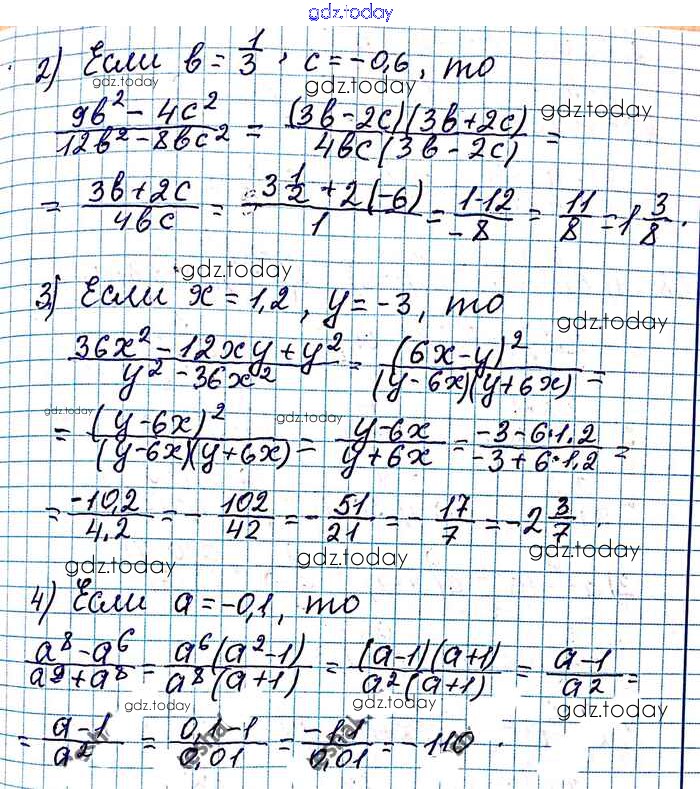 gdz.today
2) Если b = 1/3, c = -0,6, то
gdz.today gdz.today gdz.today
(9b² - 4c²)/(12b² - 8bc²) = ((3b - 2c)(3b + 2c))/(4bc(3b - 2c)) =
= (3b + 2c)/(4bc) = (3 1/2 + 2(-6))/1 = (1-12)/(-8) = 11/8 = 1 3/8.
gdz.today
3) Если x = 1,2, y = -3, то
gdz.today
(36x² - 12xy + y²)/(y² - 36x²) = (6x - y)²/((y - 6x)(y + 6x)) =
gdz.today gdz.today
= (y - 6x)²/((y - 6x)(y + 6x)) = (y - 6x)/(y + 6x) = (-3 - 6·1,2)/(-3 + 6·1,2) =
= (-10,2)/(4,2) = -102/42 = -51/21 = -17/7 = -2 3/7.
gdz.today gdz.today gdz.today
4) Если a = -0,1, то
gdz.today
(a⁸ - a⁶)/(a⁹ + a⁸) = (a⁶(a² - 1))/(a⁸(a + 1)) = ((a - 1)(a + 1))/(a²(a + 1)) = (a - 1)/a² =
gdz.today gdz.today
= (a - 1)/a² = (0,1 - 1)/(0,01) = (-1,1)/(0,01) = -110.